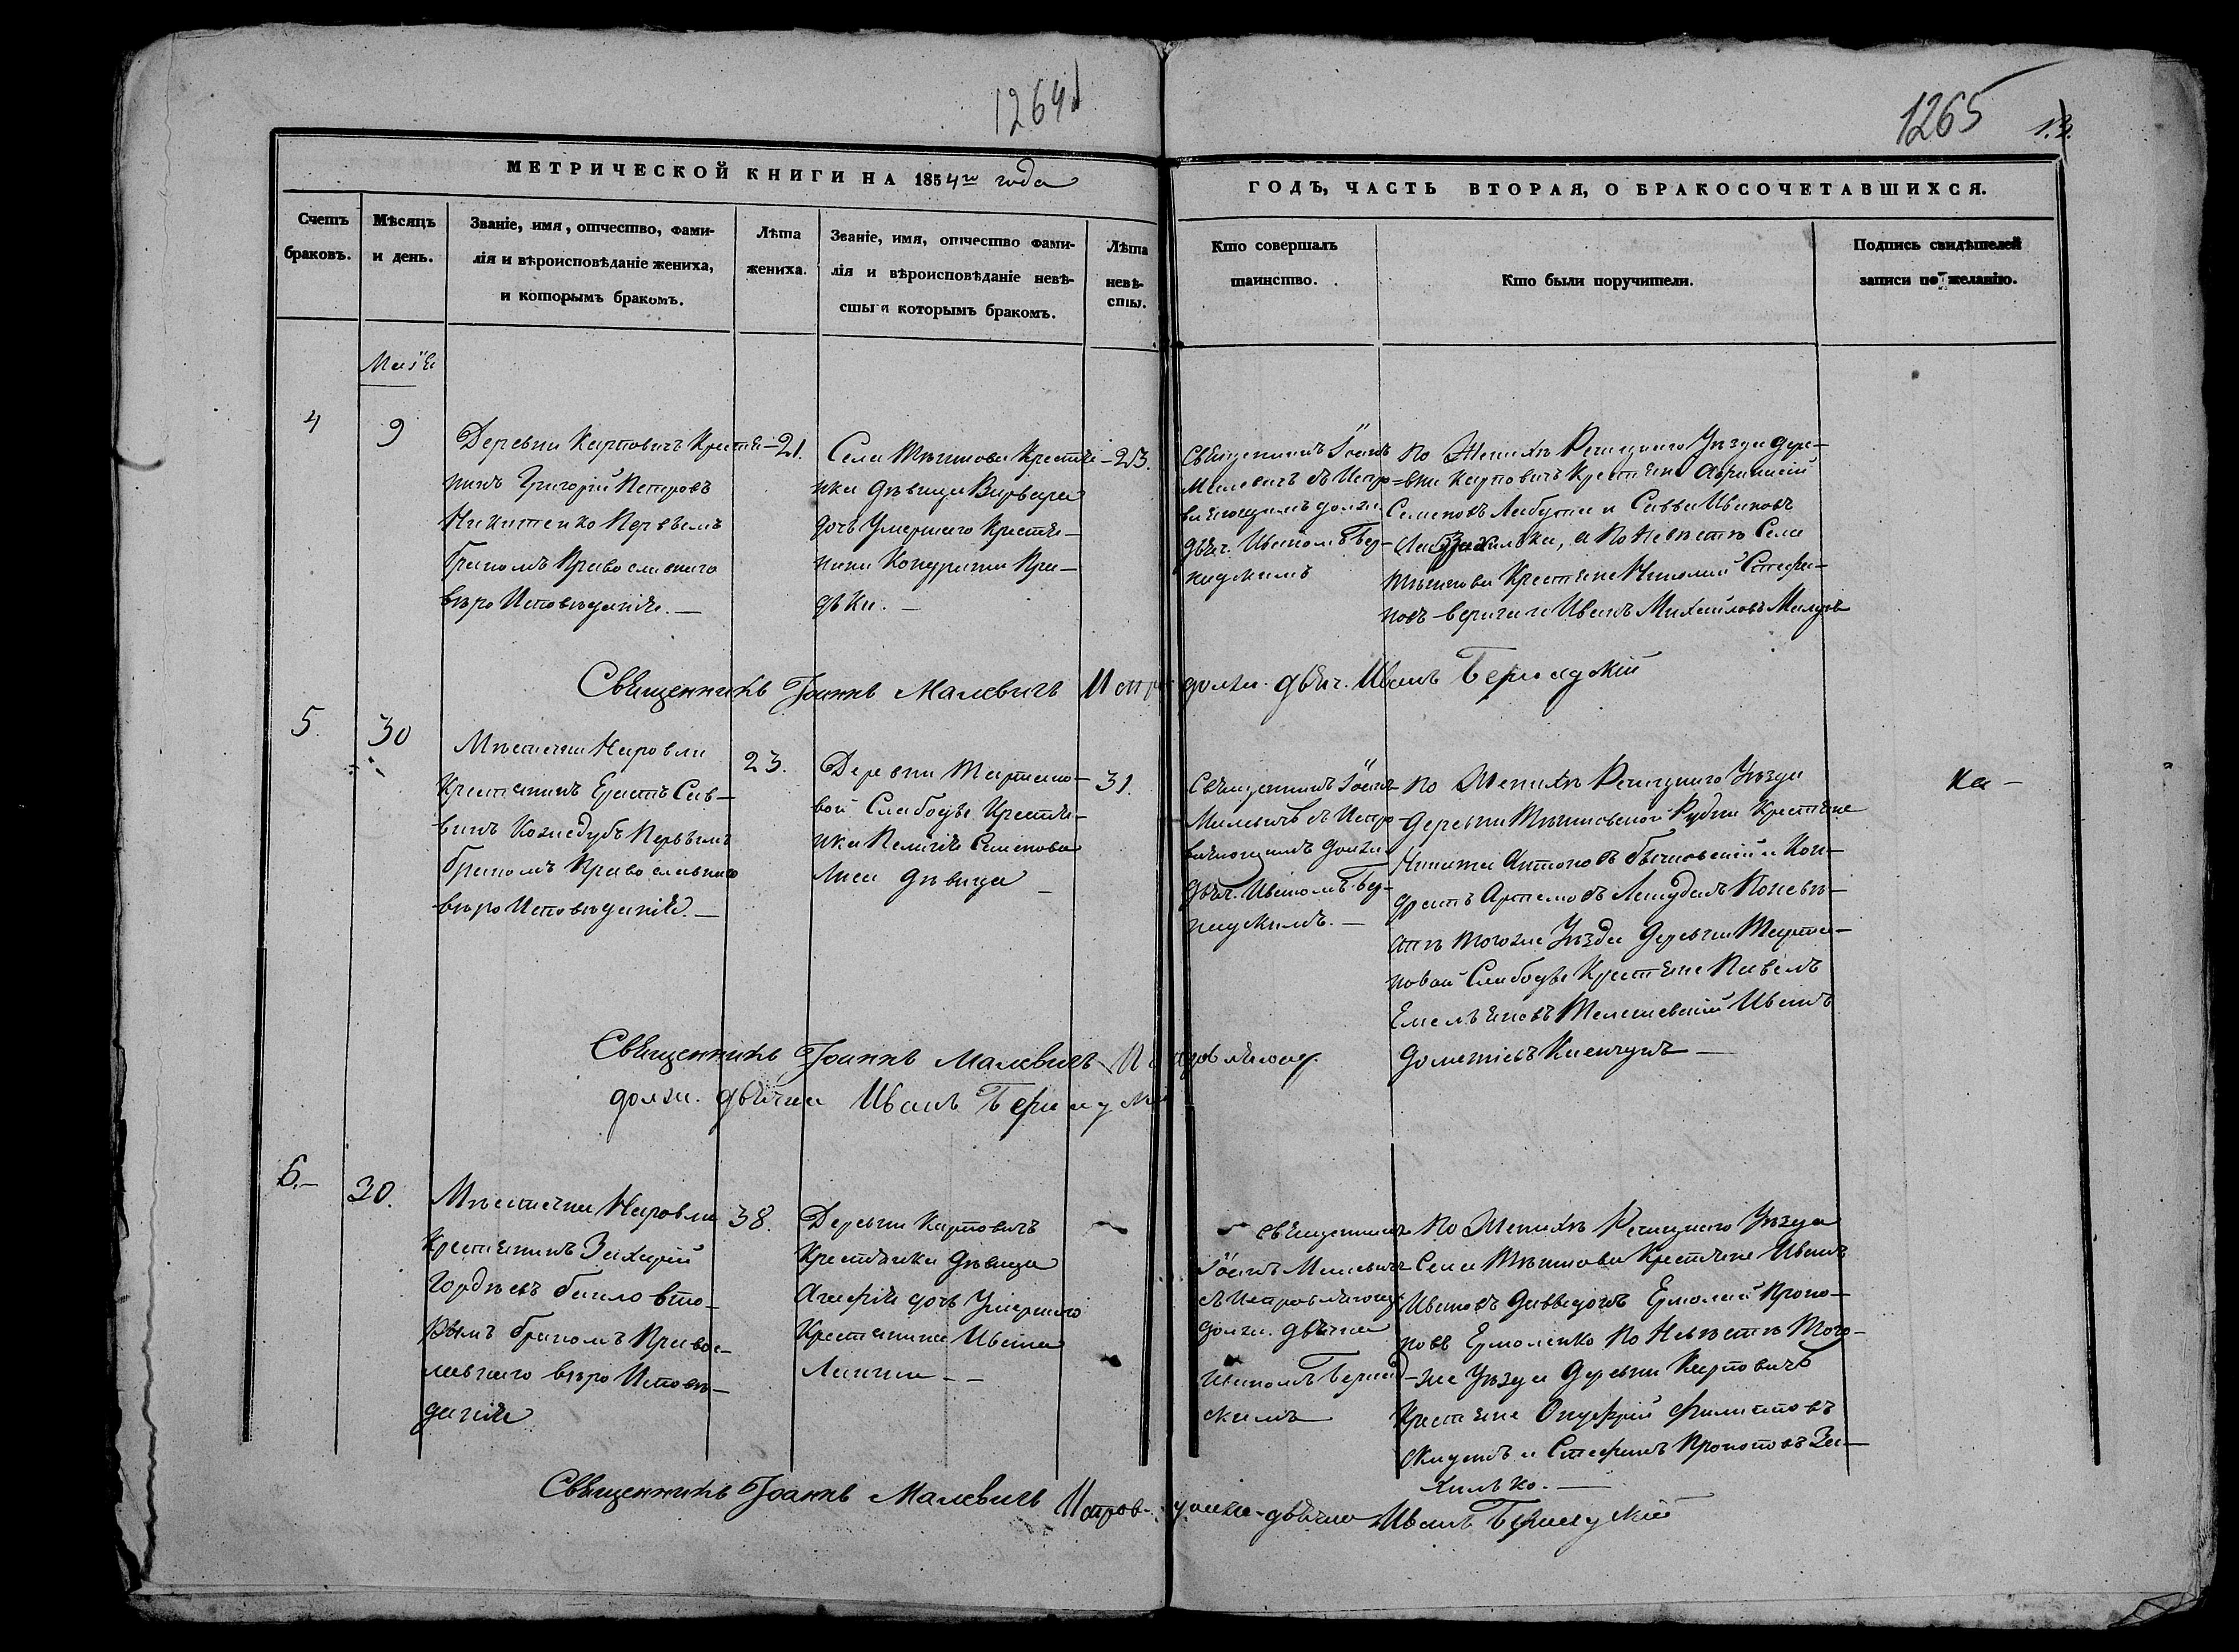 1264
1265
МЕТРИЧЕСКОЙ КНИГИ НА 1854го года
ГОДЪ, ЧАСТЬ ВТОРАЯ, О БРАКОСОЧЕТАВШИХСЯ.
Счетъ
браковъ.
Мѣсяцъ
и день.
Званіе, имя, отчество, фами-
лія и вѣроисповѣданіе жениха,
и которымъ бракомъ.
Лѣта
жениха.
Званіе, имя, отчество фами-
лія и вѣроисповѣданіе невѣ-
сты и которымъ бракомъ.
Лѣта
невѣ-
сты.
Кто совершалъ
таинство.
Кто были поручители.
Подпись свидѣтелей
записи по желанію.
4
9
Деревни Карповичъ Крестья-
нинъ Григорій Петровъ
Никитенко Первымъ
бракомъ Православнаго
вѣро Исповѣданія. —
21.
Села Тѣшкова Крестья-
нка дѣвица Варвара
дочь Умершаго Крестья-
нина Кондрата
23.
Священникъ Іоаннъ
Малевичъ съ Испр-
вляющимъ должн.
дьяч. Иваномъ Бер-
надскимъ
По Женихѣ Речицкаго Уѣзда дере-
вни Карповичъ Крестьяне
Семеновъ и Савва Ивановъ
а По Невѣстѣ Села
Тѣшкова Крестьяне Николай Стефа-
новъ и Иванъ Михайловъ
Священникъ Іоаннъ Малевичъ Испр. должн. дьяч. Иванъ Бернадскій
5.
30
Мѣстечка Наровли
Крестьянинъ Сав-
винъ Козиедубъ Первымъ
бракомъ Православнаго
вѣро Исповѣданія. —
23.
Деревни Мартино-
вой Слабоды Крестья-
нка Пелагія Семенова
дѣвица —
31.
Священникъ Іоаннъ
Малевичъ съ Испр-
вляющимъ должн.
дьяч. Иваномъ Бер-
надскимъ. —
По Женихѣ Речицкаго Уѣзда
Деревни Тѣшковской Рудни Крестьяне
Никита Антоновъ и Кон-
дратъ Артемовъ По невѣ-
стѣ тогоже Уѣзда деревни Марти-
новой Слабоды Крестьяне Павелъ
Емельяновъ Иванъ
Священникъ Іоаннъ Малевичъ Исправляющ.
должн. дьячка Иванъ Бернадскій
6.—
30.
Мѣстечка Наровли
Крестьянинъ Захарій
Гордѣевъ вто-
рымъ бракомъ Правос-
лавнаго вѣро Исповѣ-
данія
38.
Деревни Карповичъ
Крестьянка дѣвица
Агафія дочь Умершаго
Крестьянина Ивана
Священникъ
Іоаннъ Малевичъ
съ Исправляющ.
должн. дьячка
Иваномъ Бернад-
скимъ
По Женихѣ Речицкаго Уѣзда
Села Тѣшкова Крестьяне Иванъ
Ивановъ Ермолай Проко-
повъ Ермоленко По Невѣстѣ Того-
же Уѣзда Деревни Карповичъ
Крестьяне Онуфрій Филиповъ
и Стефанъ Прокоповъ За-
хилько. —
Священникъ Іоаннъ Малевичъ Исправ. должн. дьячка Иванъ Бернадскій